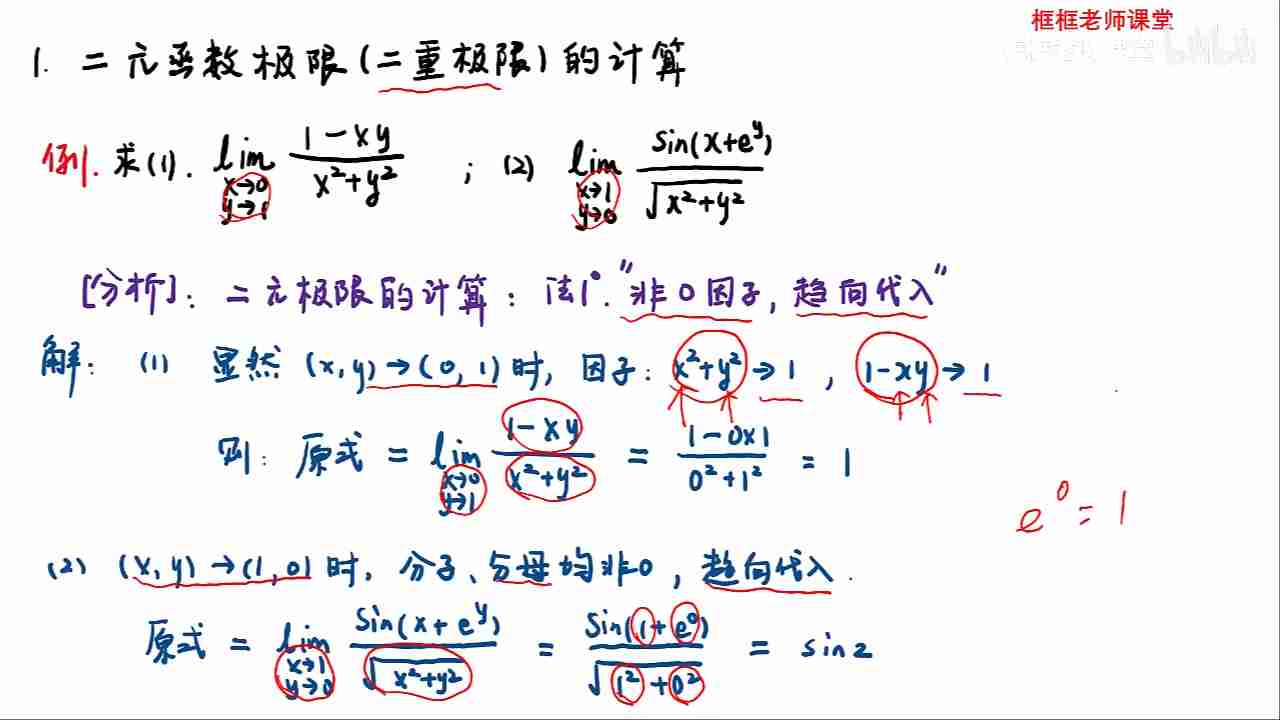 框框老师课堂
1. 二元函数极限(二重极限)的计算
例. 求(1). lim x→0 y→1 (1-xy)/(x²+y²) ; (2) lim x→1 y→0 sin(x+e^y)/√(x²+y²)
[分析]: 二元极限的计算: 法1°. "非0因子, 趋向代入"
解: (1) 显然 (x,y)→(0,1)时, 因子: x²+y²→1, 1-xy→1
则: 原式 = lim x→0 y→1 (1-xy)/(x²+y²) = (1-0×1)/(0²+1²) = 1
e⁰=1
(2) (x,y)→(1,0)时, 分子、分母均非0, 趋向代入.
原式 = lim x→1 y→0 sin(x+e^y)/√(x²+y²) = sin(1+e⁰)/√(1²+0²) = sin2